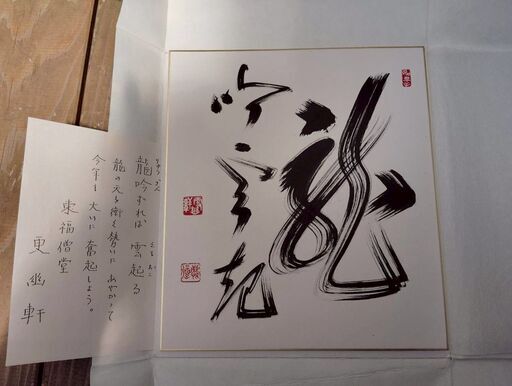 龍
吟雲起
龍吟ずれば 雲起る
龍の天を衝く勢いに あやかって
今年も 大いに 奮起しよう。
東福僧堂
更幽軒